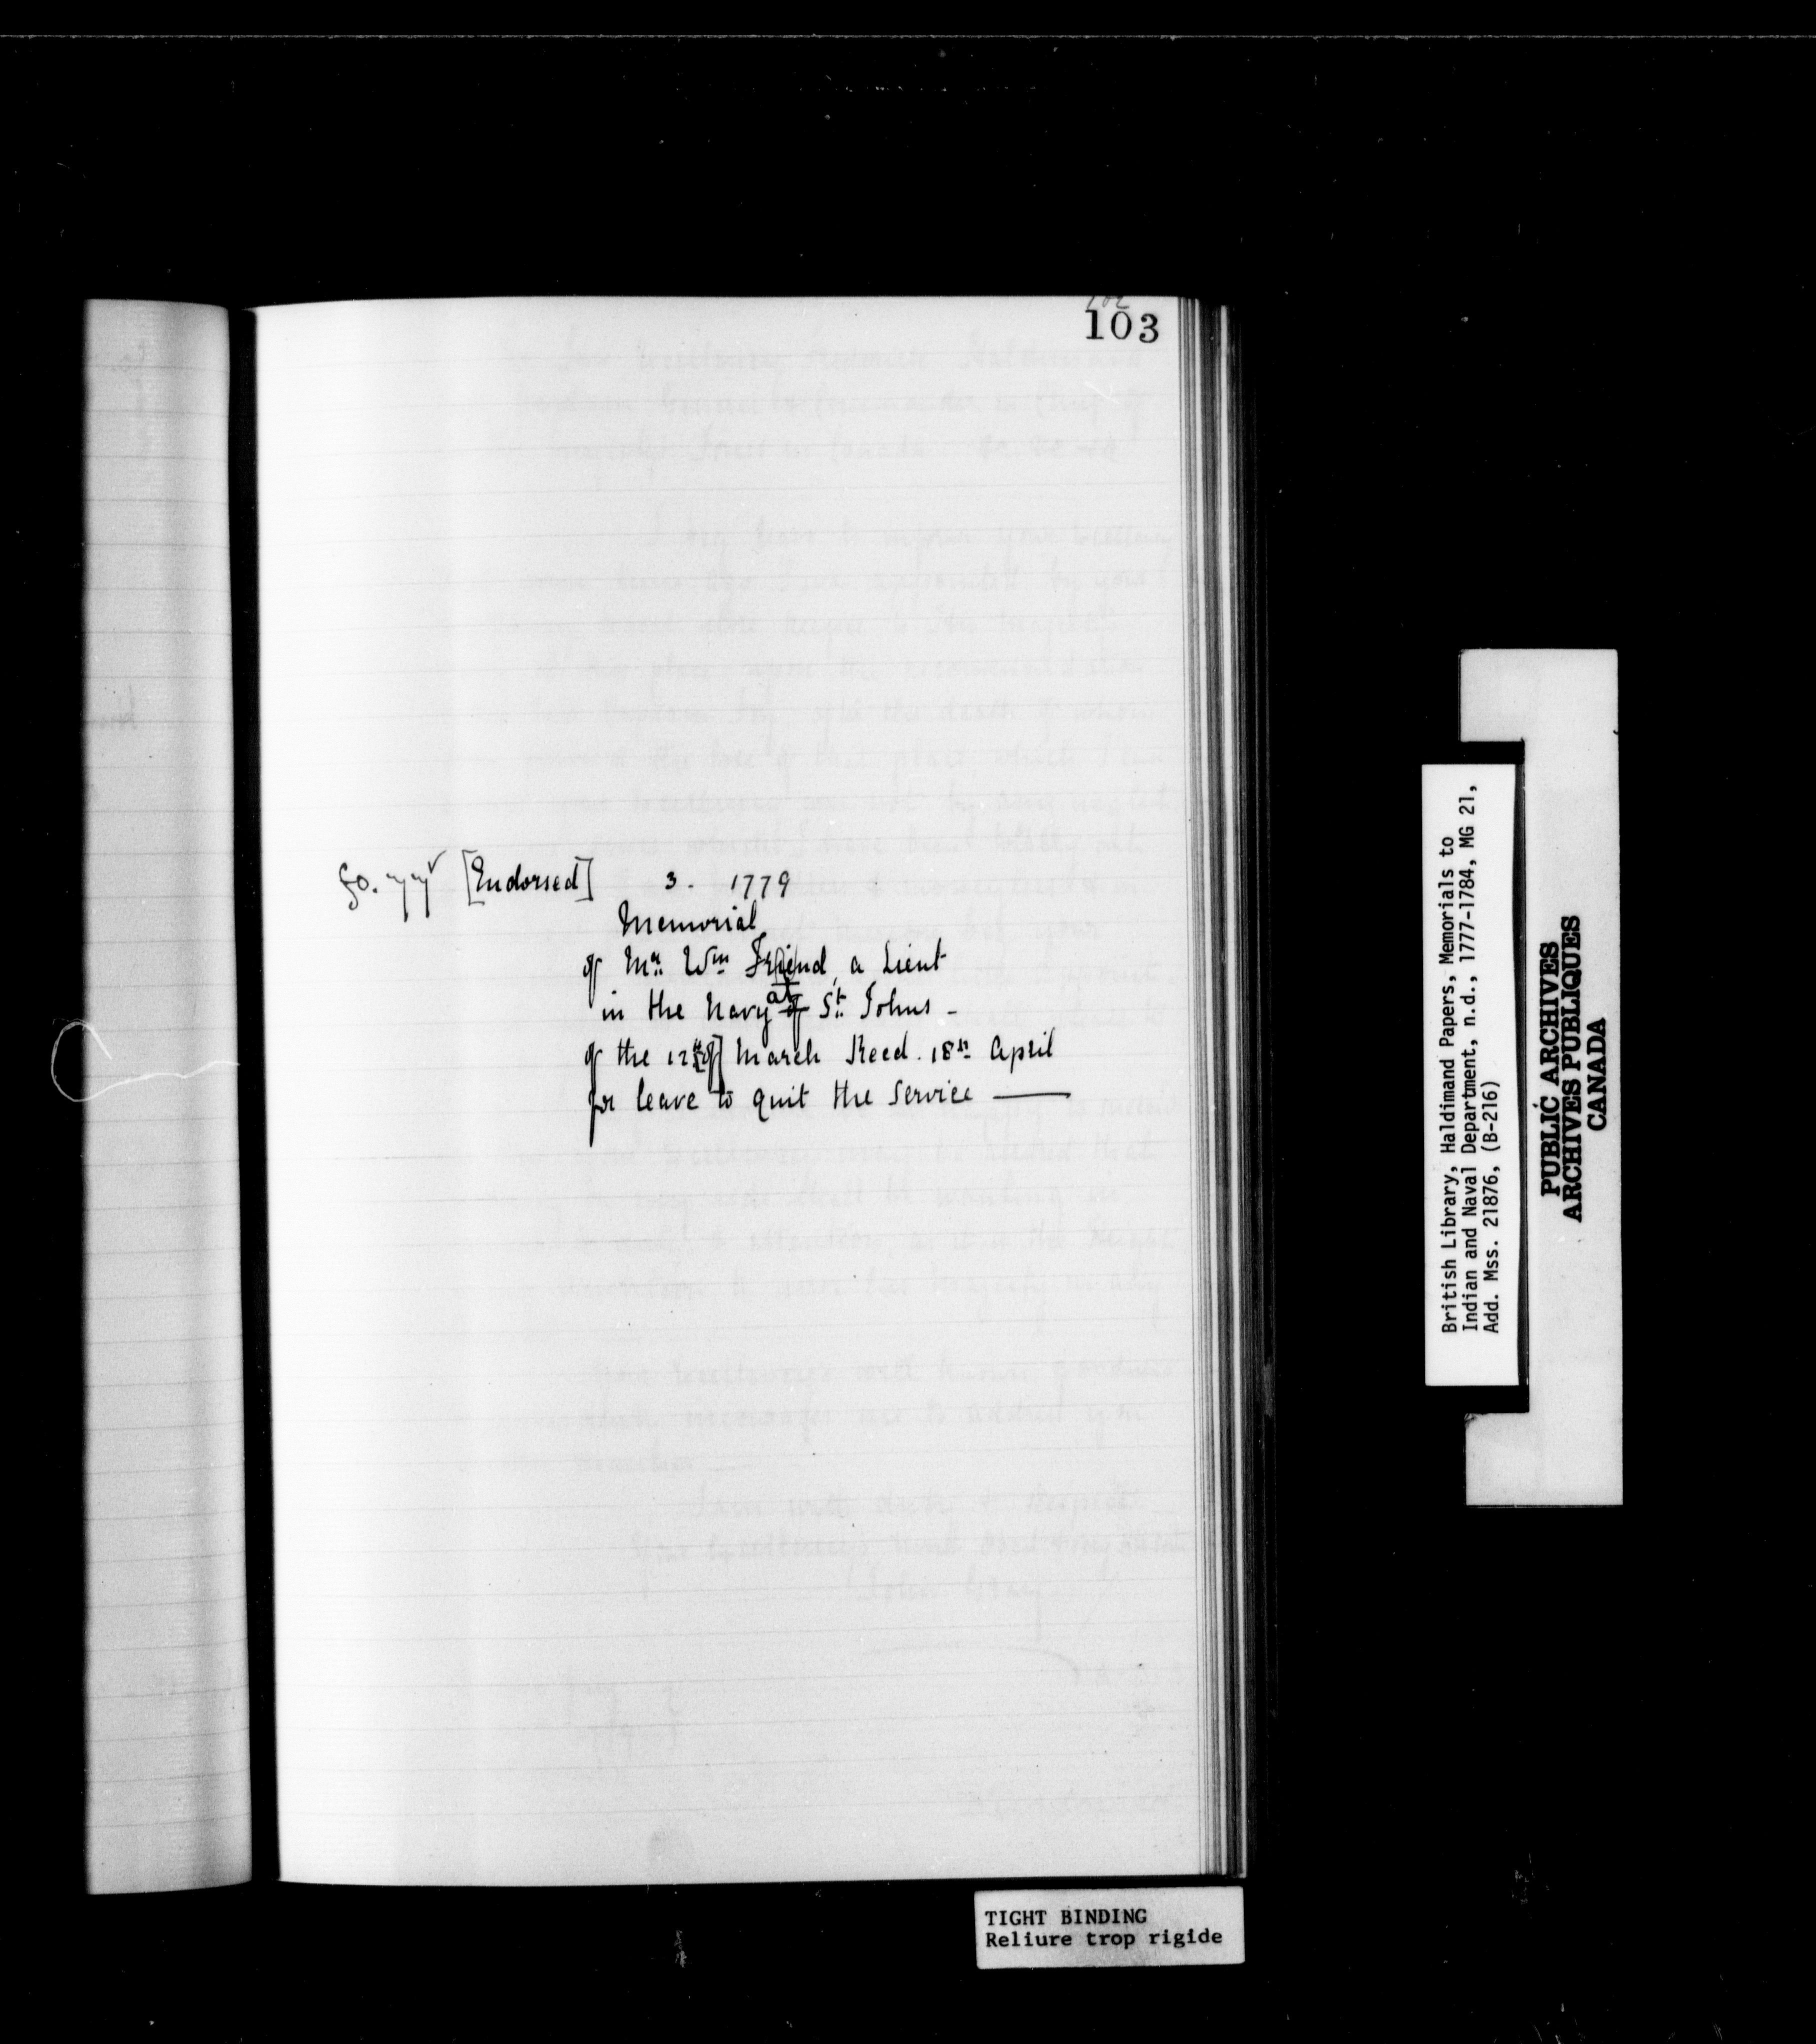 102
103
fo. 77v [Endorsed] 3. 1779
Memorial
of Mr. Wm Friend, a Lieut
in the Navy at of St. Johns -
of the 12th [of] March Recd. 18th April
for leave to quit the Service ———
British Library, Haldimand Papers, Memorials to
Indian and Naval Department, n.d., 1777-1784, MG 21,
Add. Mss. 21876, (B-216)
PUBLIC ARCHIVES
ARCHIVES PUBLIQUES
CANADA
TIGHT BINDING
Reliure trop rigide